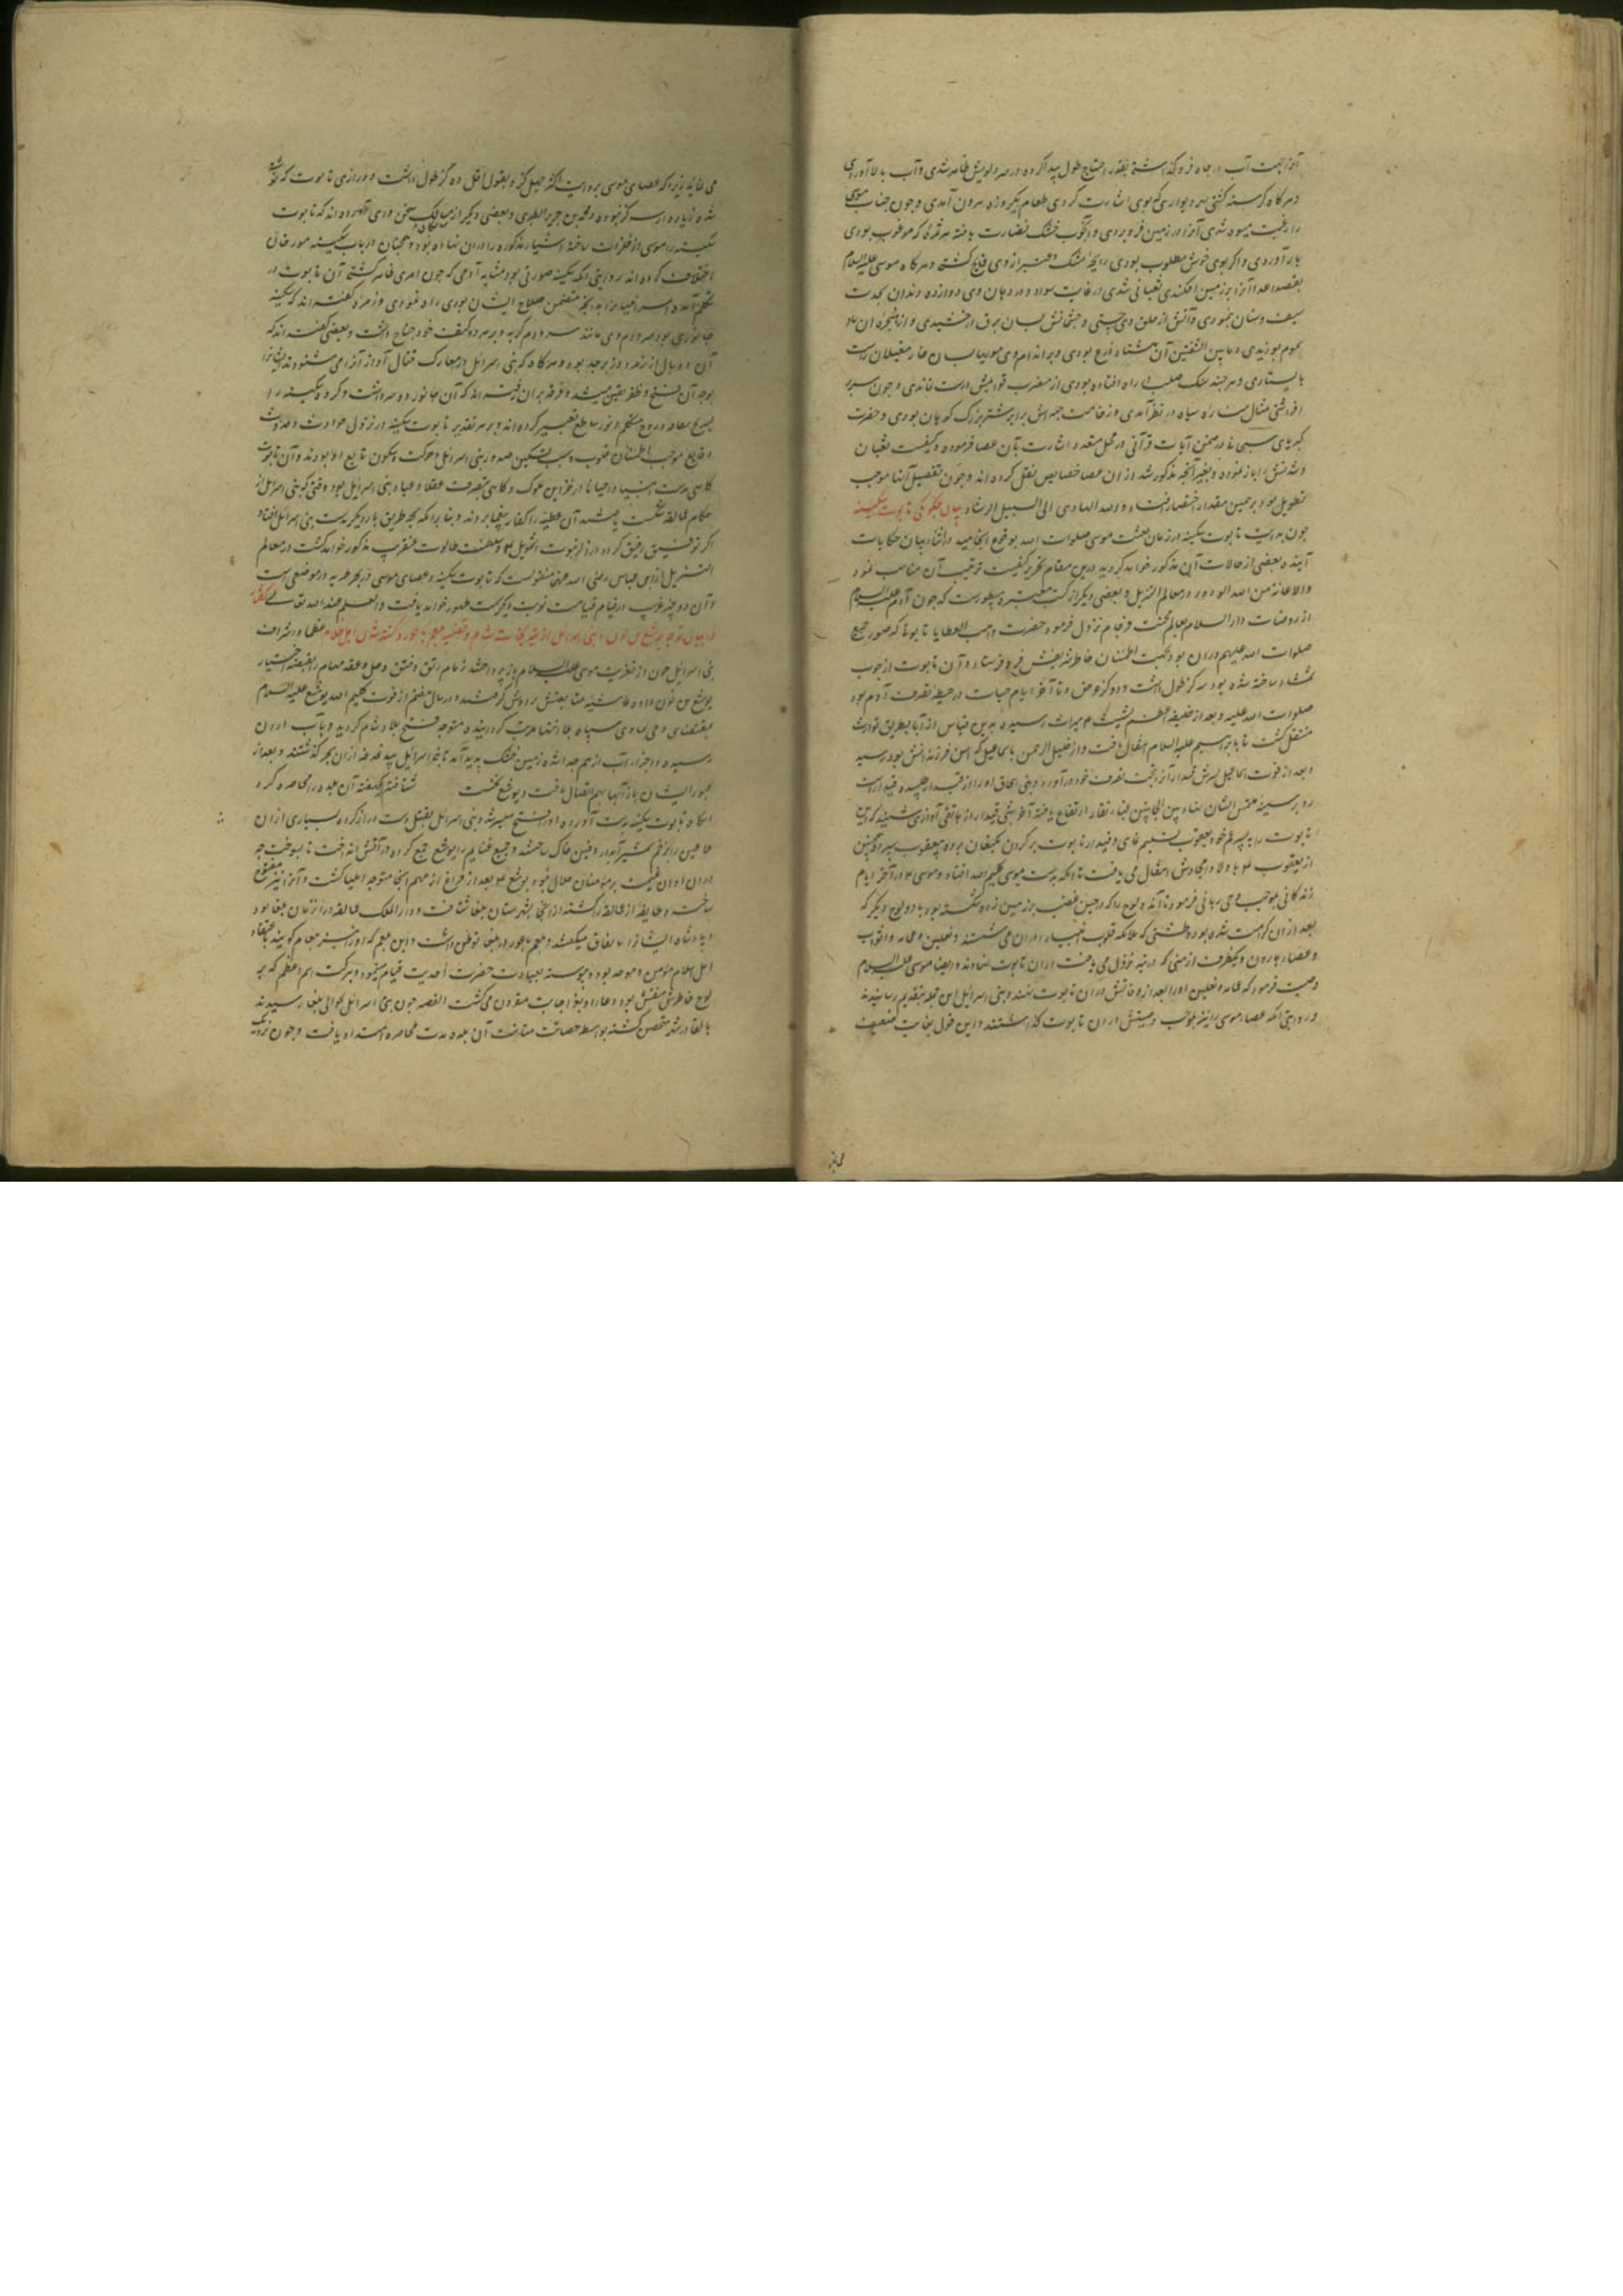 آنرا بجهت آب در چاه فرو گذاشتی بقدر احتیاج طول پیدا کرده در سر دلویش ظاهر شدی و آب بالا آوردی
و هرگاه گرسنه گشتی بهر دیواری که بوی اشارت کردی طعام یکروزه بیرون آمدی و چون جناب موسی
را رغبت میوه شدی آنرا در زمین فرو بردی و آن چوب خشک نضارت یافته هر ثمره که مرغوب بودی
بار آوردی و اگر بوی خوش مطلوب بودی رایحه مشک و عنبر از وی فایح گشتی و هرگاه موسی علیه السلام
بقصد اعدا آنرا بر زمین افکندی ثعبانی شدی در غایت سواد و در دهان وی دوازده دندان بحدت
سیف و سنان نمودی و آتش از حلق وی جستی و چشمانش بسان برق درخشیدی و از منخره آن باد
سموم بوزیدی و ما بین الشفتین آن هشتاد ذرع بودی و بر اندام وی مویها بسان خار مغیلان راست
بایستادی و هر چند سنگ صلب در راه افتاده بودی از مضرب قوایمش درست نماندی و چون سر بر
افراشتی مثال مناره سیاه در نظر آمدی و ضخامت جثه اش برابر شتر بزرگ کوهان بودی و حضرت
کبریای سبحانی در ضمن آیات قرآنی در محل متعدد اشارت بآن عصا فرموده و کیفیت ثعبان
شدنش را باز نموده و بغیر آنچه مذکور شد از آن عصا خصایص نقل کرده اند و چون تفصیل آنها موجب
تطویل بود بر همین مقدار اختصار افتاد و الله الهادی الی السبیل الرشاد بیان چگونگی تابوت سکینه
چون بدایت تابوت سکینه در زمان بعثت موسی صلوات الله بوقوع انجامید و در اثناء بیان حکایات
آینده بعضی از حالات آن مذکور خواهد گردید درین مقام تحریر کیفیت ترتیب آن مناسب نمود
والاعانة من الله الودود در معالم التنزیل و بعضی دیگر از کتب معتبره مسطورست که چون آدم علیه السلام
از روضات دار السلام بعالم محنت فرجام نزول فرمود حضرت واهب العطایا تابوتی که صور جمیع
صلوات الله علیهم در آن بود بجهت اطمینان خاطر شریفش فرو فرستاد و آن تابوت از چوب
شمشاد ساخته شده بود سه گز طول داشت و دو گز عرض و تا آخر ایام حیات در حیطه تصرف آدم بود
صلوات الله علیه و بعد از خلیفه اعظم شیث م میراث رسیده بدین قیاس از آبا بطریق توارث
منتقل گشت تا بابراهیم علیه السلام انتقال یافت و از خلیل الرحمن باسماعیل که اسن فرزندانش بود رسید
و بعد از فوت اسماعیل پسرش قیدار آنرا بتحت تصرف خود درآورد و بنی اسحاق او را از قیدار طلبیده قیدار دست
رد بر سینه ملتمس ایشان نهاد
تابوت را به پسر عم خود یعقوب تسلیم نمای و قیدار تابوت بر گردن بکنعان برده به یعقوب سپرد و همچنین
از یعقوب م باولاد امجادش انتقال می یافت تا آنکه بدست موسی کلیم الله افتاد و موسی م در آخر ایام
زندگانی بموجب وحی ربانی فرمود تا آن دو لوح را که در حین غضب بر زمین زده شکسته بود با دو لوح دیگر که
بعد از آن کرامت شده بود و طشتی که ملائکه قلوب انبیا در آن می شستند و نعلین و عمامه و اثواب
و عصاء هارون و یکظرف از منی که در تیه نزول می یافت در آن تابوت نهادند و ایضا موسی علیه السلام
وصیت فرمود که عمامه و نعلین او را بعد از وفاتش در آن تابوت نهند و بنی اسرائیل این جمله بتقدیم رسانیدند
و روایتی آنکه عصاء موسی را نیز بموجب وصیتش در آن تابوت گذاشتند و این قول بغایت ضعیف
می نماید
می نماید زیرا که عصای موسی بروایت اکثر چهل گز و بقول اقل ده گز طول داشت و درازی تابوت که نوشته
شده زیاده از سه گز نبوده و محمد بن جریر الطبری و بعضی دیگر از سالکان مسالک سخن وری آورده اند که تابوت
سکینه را موسی از فلزات ساخته اشیاء مذکوره را در آن نهاده بود و همچنان در باب سکینه مورخان
اختلاف کرده اند روایتی آنکه سکینه صورتی بود مشابه آدمی که چون امری ظاهر گشتی آن تابوت در
تکلم آمده اسرائیلیان را بدانچه متضمن صلاح ایشان بودی راه نمودی و زمره گفته اند که سکینه
جانوری بود سر و دم وی مانند سر و دم گربه و بر هر دو کتف خود جناح داشت و بعضی گفته اند که
آن دو بال از زمرد و زبرجد بود و هرگاه که بنی اسرائیل در معارک قتال آواز آنرا می شنودند ایشانرا
بوجدان فتح و ظفر یقین میشد و فرقه بر آن رفته اند که آن جانور دو سر داشت و گروهی سکینه را
بریح هفافه و روح متکلم و نور ساطع تعبیر کرده اند و بر هر تقدیر تابوت سکینه در نزول حوادث و حدوث
وقایع موجب اطمینان قلوب و سبب تسکین صدور بنی اسرائیل و حرکت و سکون تابع او بودند و آن تابوت
گاهی بدست انبیا و احیانا در خزاین ملوک و گاهی بتصرف علما و عباد بنی اسرائیل بود وقتی که بنی اسرائیل از
حکام عمالقه شکست یافتند آن عطیه را کفار بیغما بردند و بنا بر آنکه بچه طریق بار دیگر بدست بنی اسرائیل افتاد
اگر توفیق رفیق گردد در ذکر نبوت اشمویل م و سلطنت طالوت عنقریب مذکور خواهد گشت در معالم
التنزیل از ابن عباس رضی الله عنهما منقولست که تابوت سکینه و عصای موسی در بحیره طبریه در موضعی است
و آن دو چیز غریب در قیام قیامت نوبت دیگر سمت ظهور خواهد یافت والعلم عند الله تعالی گفتار
در بیان توجه یوشع بن نون با بنی اسرائیل از تیه بجانب شام و قضیه بلعم باعور و کشته شدن اهل ظلام عظما و اشراف
بنی اسرائیل چون از تعزیت موسی علیه السلام باز پرداختند زمام رتق و فتق و حل و عقد مهام را بقبضه اختیار
یوشع بن نون داده غاشیه متابعتش بر دوش گرفتند و در سال هفتم از فوت کلیم الله یوشع علیه السلام
بمقتضای وحی سماوی سپاه بلا انتها مرتب گردانیده متوجه فتح بلاد شام گردید و بآب اردن
رسیده و اجزاء آب از هم جدا شده زمین خشک پدید آمد تا بنی اسرائیل پیاده از آن بحر گذشتند و بعد از
عبور ایشان باز آبها بهم اتصال یافت و یوشع نخست شتافته یکهفته آن بلده را محاصره کرد
آنگاه تابوت سکینه بدست آورده او را فتح میسر شد و بنی اسرائیل بقتل دست دراز کرده بسیاری از آن
طاغین را بزخم شمشیر آبدار دفین خاک ساختند و جمیع غنایم را یوشع جمع کرده در آتش انداخت تا بسوخت چه
در آن اوان غنیمت بر مؤمنان حلال نبود و یوشع م بعد از فراغ از مهم آنجا متوجه ایلیا گشت و آنرا نیز مفتوح
ساخت و طایفه از عمالقه را کشته از آنجا بشهرستان بلقا شتافت و دار الملک عمالقه در آن زمان بلقا بود
و پادشاه ایشانرا بالاق میگفتند و بلعم باعور در بلقا توطن داشت و این بلعم که او را نیز بلعام گویند باعتقاد
اهل اسلام مؤمن و موحد بود و پیوسته بعبادت حضرت احدیت قیام مینمود و ببرکت اسم اعظم که بر
لوح خاطرش منقش بود دعاء او بعز اجابت مقرون می گشت القصه چون بنی اسرائیل بحوالی بلقا رسیدند
بالق در شهر متحصن گشته بواسطه حصانت و متانت آن بلده مدت محاصره امتداد یافت و چون نزدیک